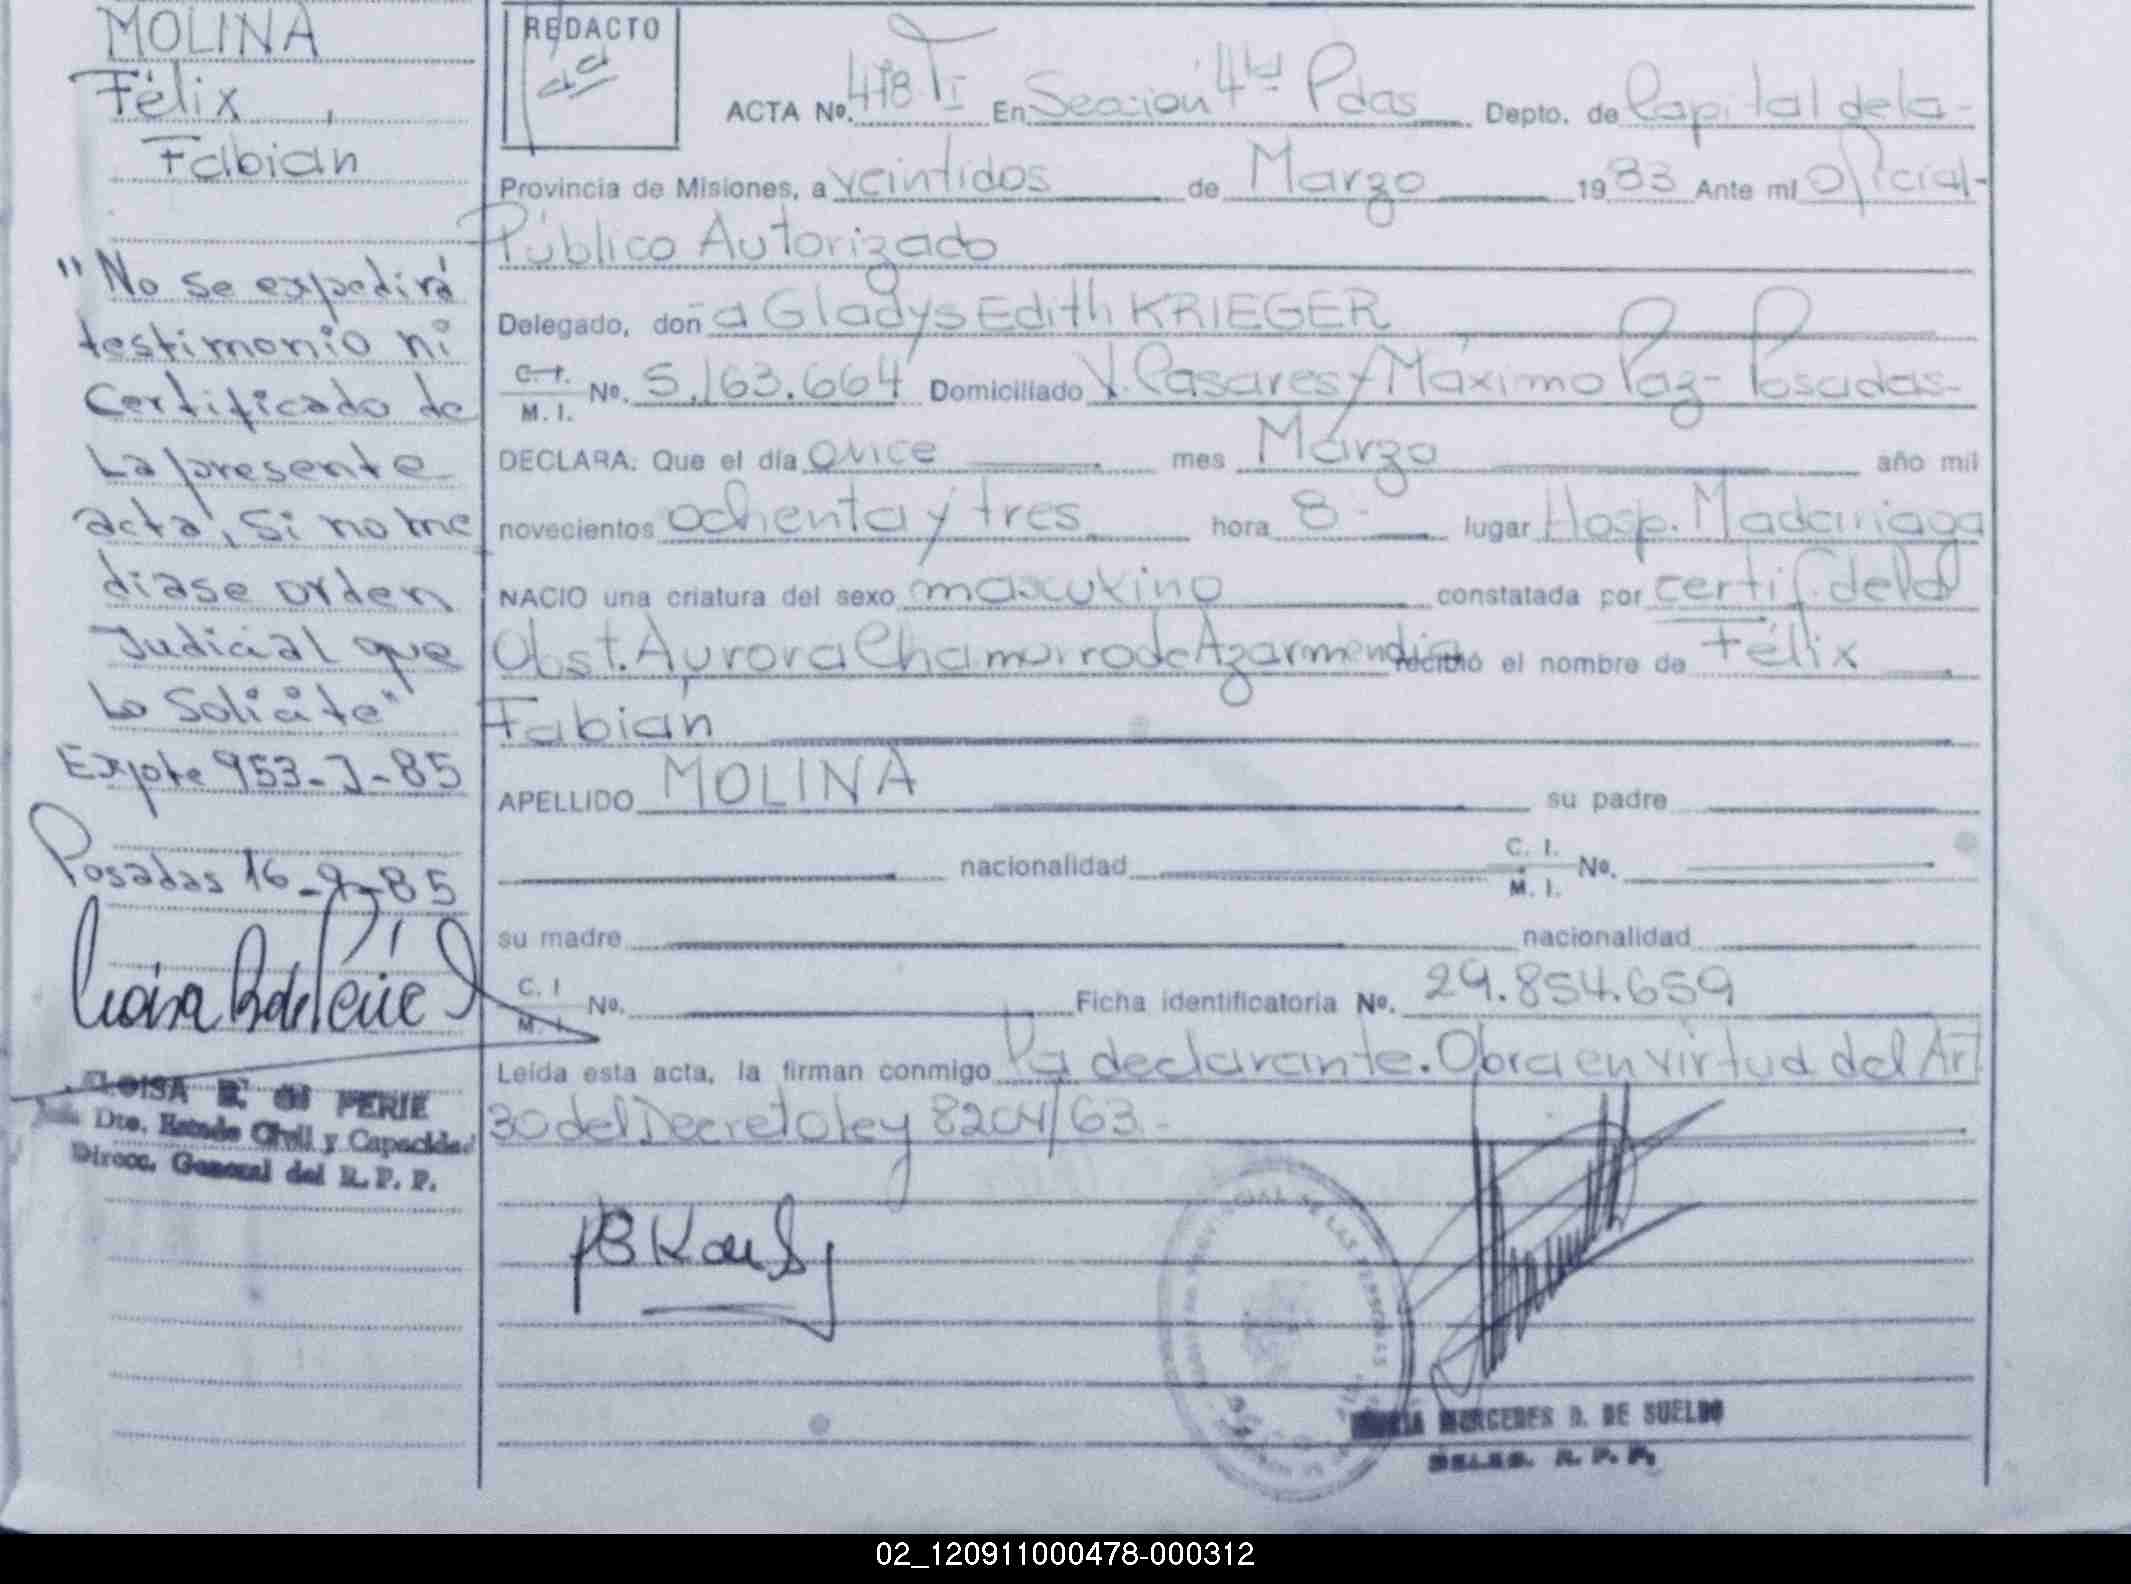 MOLINA
Félix
Fabian
"No se expedirá
testimonio ni
Certificado de
La presente
acta, si no me
diase orden
Judicial que
Lo Solicite"
Expte 953-J-85
Posadas 16-9-85
ELOISA B. de PERIE
Dto. Estado Civil y Capacidad
Direcc. General del R. P. P.
REDACTO
ACTA Nº. 478 TI En Sección 4ta Pdas Depto. de Capital de la-
Provincia de Misiones, a veintidos de Marzo 1983 Ante mí Oficial-
Público Autorizado
Delegado, doña Gladys Edith KRIEGER
C. I. M. I. Nº. 5.163.664 Domiciliado V. Casares y Máximo Paz - Posadas-
DECLARA: Que el día once mes Marzo año mil
novecientos ochenta y tres hora 8- lugar Hosp. Madariaga
NACIO una criatura del sexo masculino constatada por certif. de la
Obst. Aurora Chamorro de Azarmendia recibió el nombre de Félix
Fabián
APELLIDO MOLINA su padre
nacionalidad C. I. M. I. Nº.
su madre nacionalidad
C. I M. I. Nº. Ficha identificatoria Nº. 29.854.659
Leída esta acta, la firman conmigo la declarante. Obra en virtud del Art
30 del Decreto ley 8204/63.-
PROVINCIAL DE LAS PERSONAS
MARIA MERCEDES D. DE SUELDO
DELEG. R. P. P.
02_120911000478-000312